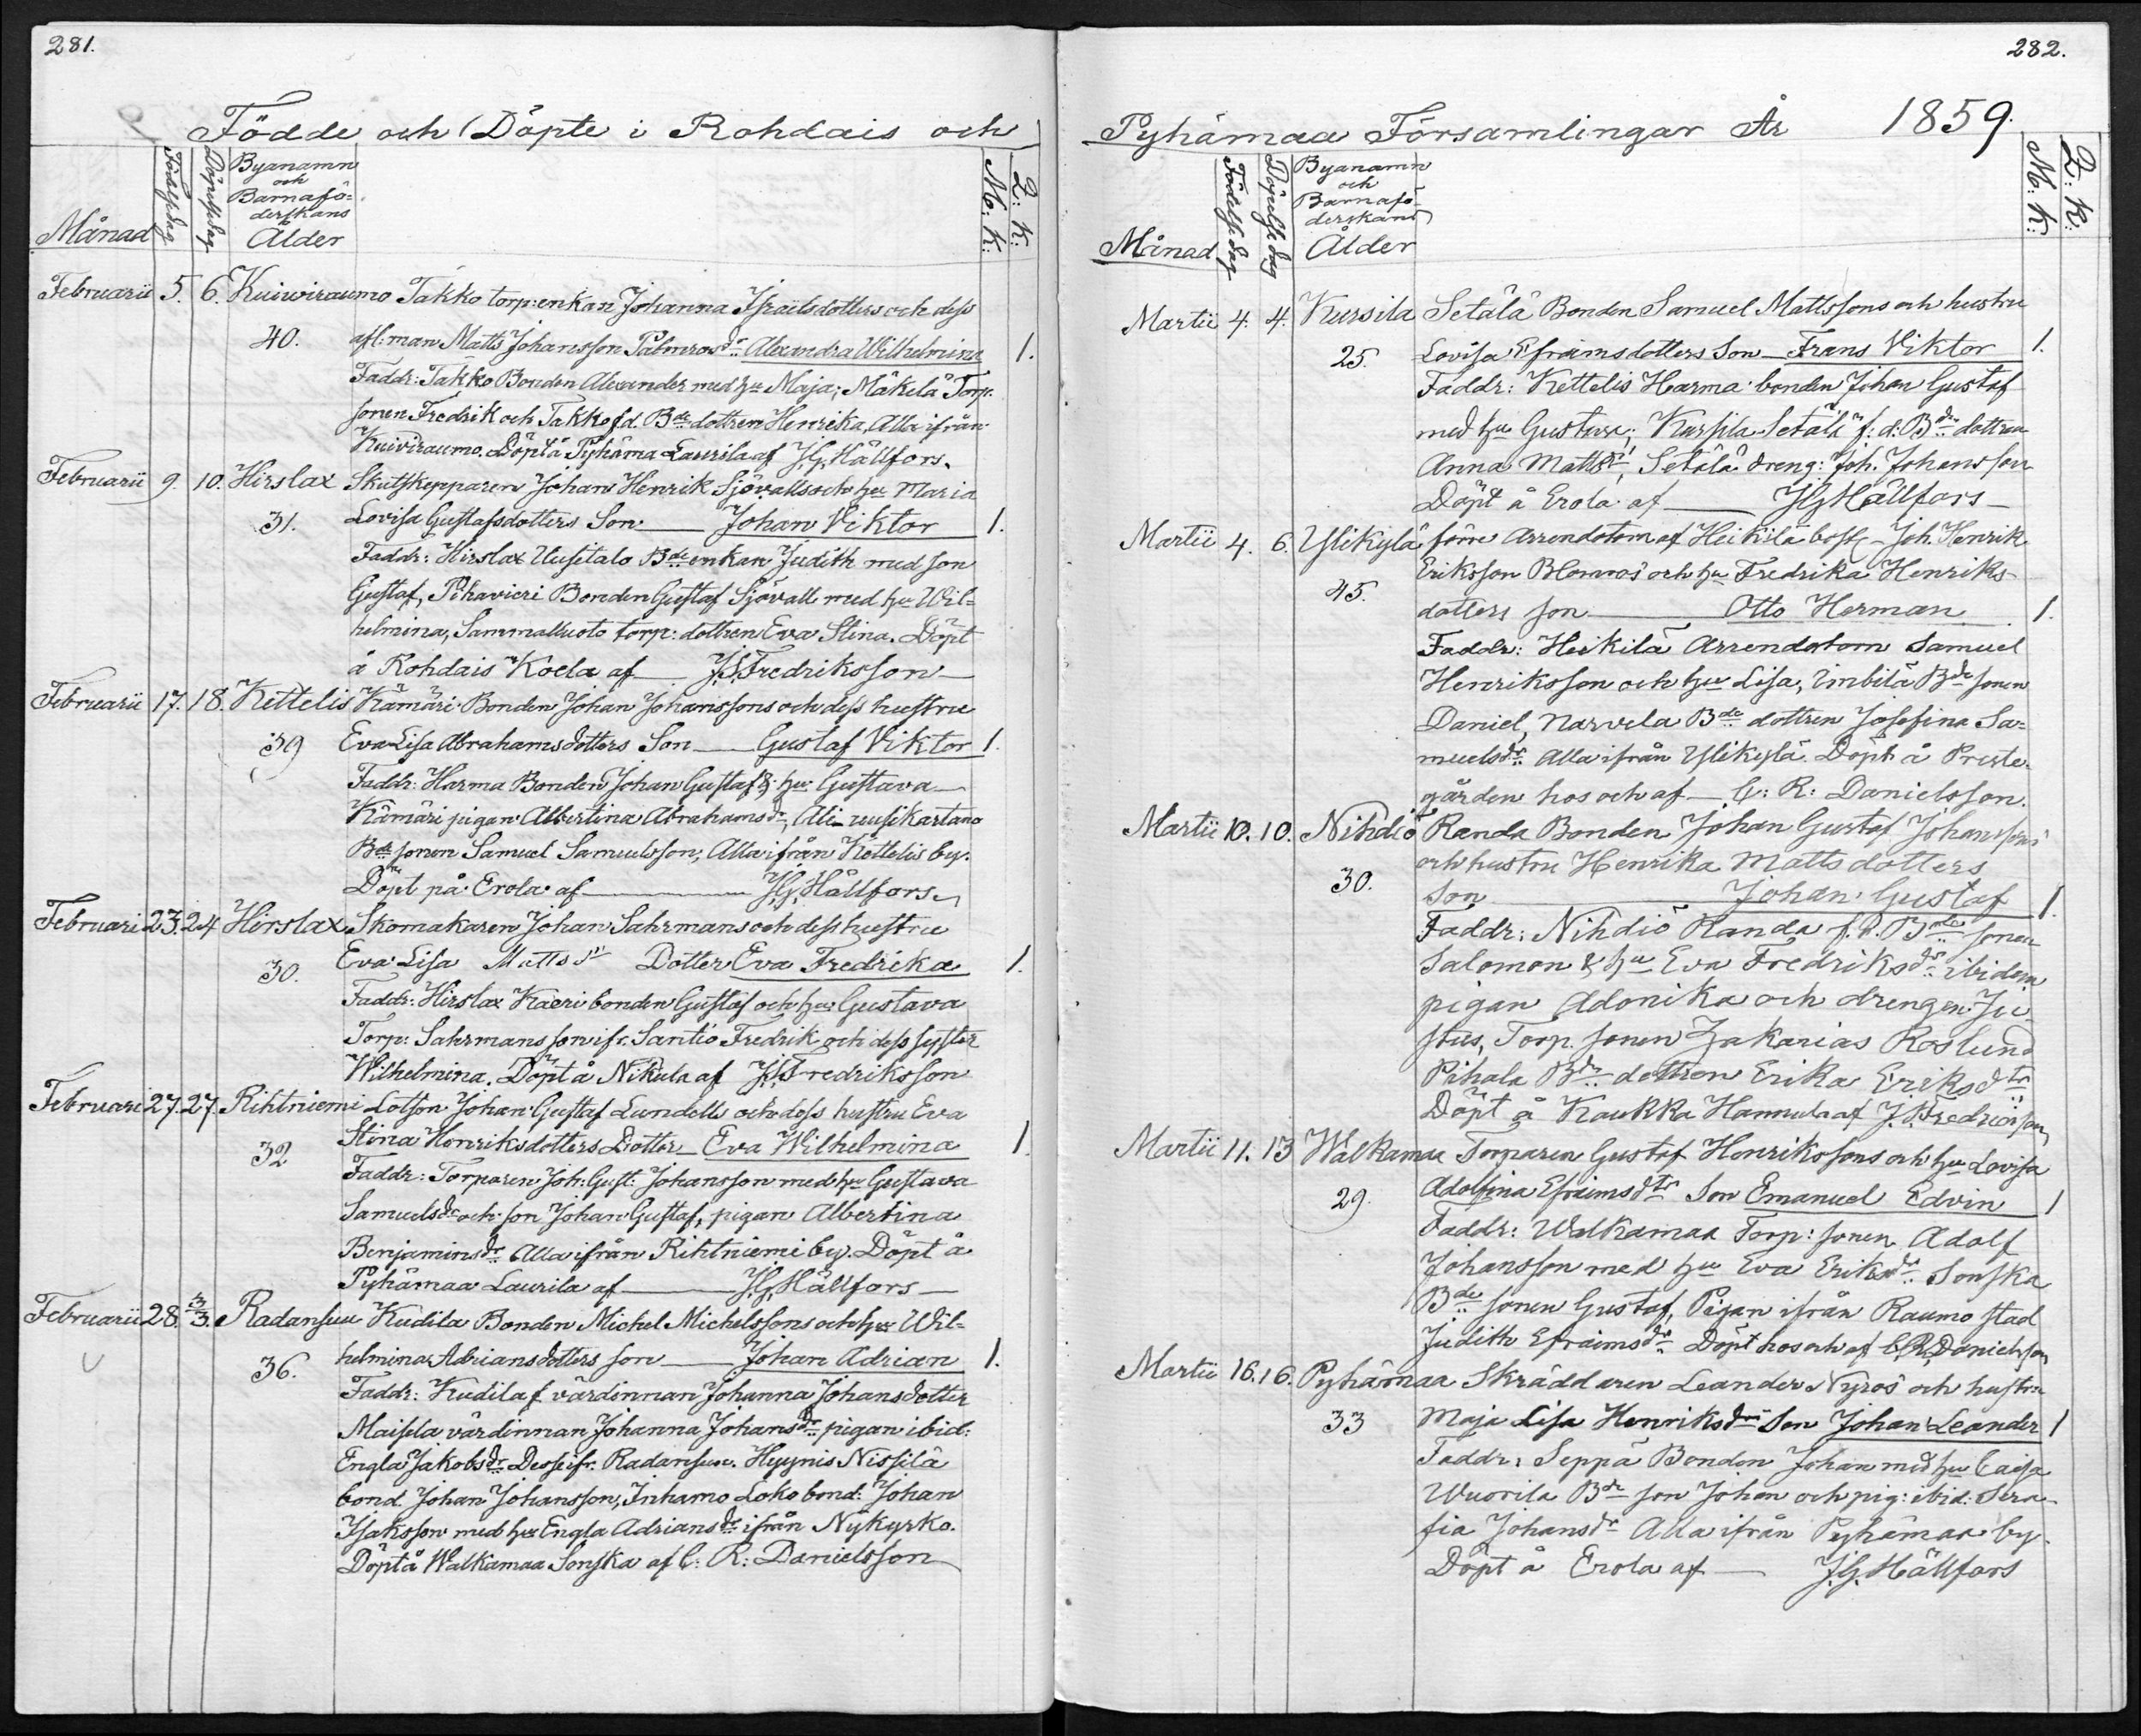 281.
Födde och Döpte i Rohdais och
Månad
Födelsedag
Döpelsedag
Byanamn
och
Barnafö-
derskans
Ålder
M: K:
Q: K:
Februarii 5. 6. Kuiwiraumo Takko torp:enkan Johanna Israelsdotters och dess
40. afl: man Matts Johansson Palmros dr Alexandra Wilhelmina 1.
Faddr: Takko Bonden Alexander med hu Maja; Mäkelä Torp:
sonen Fredrik och Takko f.d. Bde dottren Henrika, Alla ifrån
Kuiviraumo. Döpt å Pyhäma Laurila af J.G. Hällfors.
Februarii 9. 10. Hirslax Skutskepparen Johan Henrik Sjövalls och hu Maria
31. Lovisa Gustafsdotters Son Johan Viktor 1.
Faddr: Hirslax Uusitalo Bde enkan Judith med son
Gustaf, Pihavieri Bonden Gustaf Sjövall med hu Wil-
helmina, Sammalluoto torp: dottren Eva Stina. Döpt
å Rohdais Koela af J.S. Fredriksson
Februarii 17. 18. Kettelis Kämäri Bonden Johan Johanssons och dess hustru
39 Eva Lisa Abrahamsdotters Son Gustaf Viktor 1.
Faddr: Harma Bonden Johan Gustaf & hu Gustava
Kämäri pigan Albertina Abrahamsdr, Ali-uusikartano
Bde sonen Samuel Samuelsson, Alla ifrån Kettelis by.
Döpt på Erola af J.G. Hällfors
Februari 23. 24 Hirslax Skomakaren Johan Sahrmans och dess hustru
30. Eva Lisa Matts dr Dotter Eva Fredrika 1.
Faddr: Hirslax Kaeri bonden Gustaf och hu Gustava
Torp: Sahrmans son ifr. Santio Fredrik och dess syster
Wilhelmina. Döpt å Nikula af J.S. Fredriksson
Februari 27. 27. Rihtniemi Lotsen Johan Gustaf Lundells och dess hustru Eva
32 Stina Henriksdotters Dotter Eva Wilhelmina 1.
Faddr: Torparen Joh: Gust: Johansson med hu Gustava
Samuelsdr och son Johan Gustaf, pigan Albertina
Benjaminsdr Alla ifrån Rihtniemi by. Döpt å
Pyhämaa Laurila af J.G. Hällfors
Februarii 28. 3/3. Radansuu Kudila Bonden Michel Michelssons och hu Wil-
36. helmina Adriansdotters son Johan Adrian 1.
Faddr: Kudila f värdinnan Johanna Johansdotter
Maisila värdinnan Johanna Johansdr pigan ibid:
Engla Jakobsdr Desse ifr. Radansuu. Hyynis Nissilä
bond. Johan Johansson, Inhamo Loko bond: Johan
Isaksson med hu Engla Adriansdr ifrån Nykyrko.
Döpt å Walkamaa Sonska af C: R: Danielsson
282.
Pyhämaa Församlingar År 1859.
Månad
Födelsedag
Döpelsedag
Byanamn
och
Barnafö-
derskans
Ålder
M: K:
Q: K:
Martii 4. 4. Kursila Setälä Bonden Samuel Mattssons och hustru
25. Lovisa Efraimsdotters Son Frans Viktor 1.
Faddr: Kettelis Harma bonden Johan Gustaf
med hu Gustava; Kursila Setälä f: d: Bde dottren
Anna Mattsdr, Setälä dreng: Joh. Johansson
Döpt å Erola af J.G. Hällfors
Martii 4. 6. Ylikylä förre Arrendatorn af Heikilä bost Joh. Henrik
45. Eriksson Blomros och hu Fredrika Henriks-
dotters son Otto Herman 1.
Faddr: Heikilä Arrendatorn Samuel
Henriksson och hu Lisa, Imbilä Bde sonen
Daniel, Narvela Bde dottren Josefina Sa-
muelsdr: Alla ifrån Ylikylä. Döpt å Preste-
gården hos och af C: R: Danielsson.
Martii 10. 10. Nihdiö Randa Bonden Johan Gustaf Johanssons
och hustru Henrika Mattsdotters
30. Son Johan Gustaf 1.
Faddr: Nihdiö Randa f.d. Bde sonen
Salomon & hu Eva Fredriksdr ibidem
pigan Adonika och drengen Ju-
stus, Torp. sonen Zakarias Roslund
Pihala Bde dottren Erika Eriksdtr
Döpt å Kaukka Hannula af J.S. Fredricsson
Martii 11. 13 Walkamaa Torparen Gustaf Henrikssons och hu Lovisa
29. Adolfina Efraimsdtrs Son Emanuel Edvin 1
Faddr: Walkamaa Torp: sonen Adolf
Johansson med hu Eva Eriksdr Sonska
Bde sonen Gustaf, Pigan ifrån Raumo stad
Judith Efraimsdr Döpt hos och af C.R. Danielsson
Martii 16. 16. Pyhämaa Skräddaren Leander Nyros' och hustru
33 Maja Lisa Henriksdrs Son Johan Leander 1
Faddr: Seppä Bonden Johan med hu Caisa
Wuorila Bde son Johan och pig: ibid: Sera-
fia Johansdr Alla ifrån Pyhämaa by.
Döpt å Erola af J.G. Hällfors